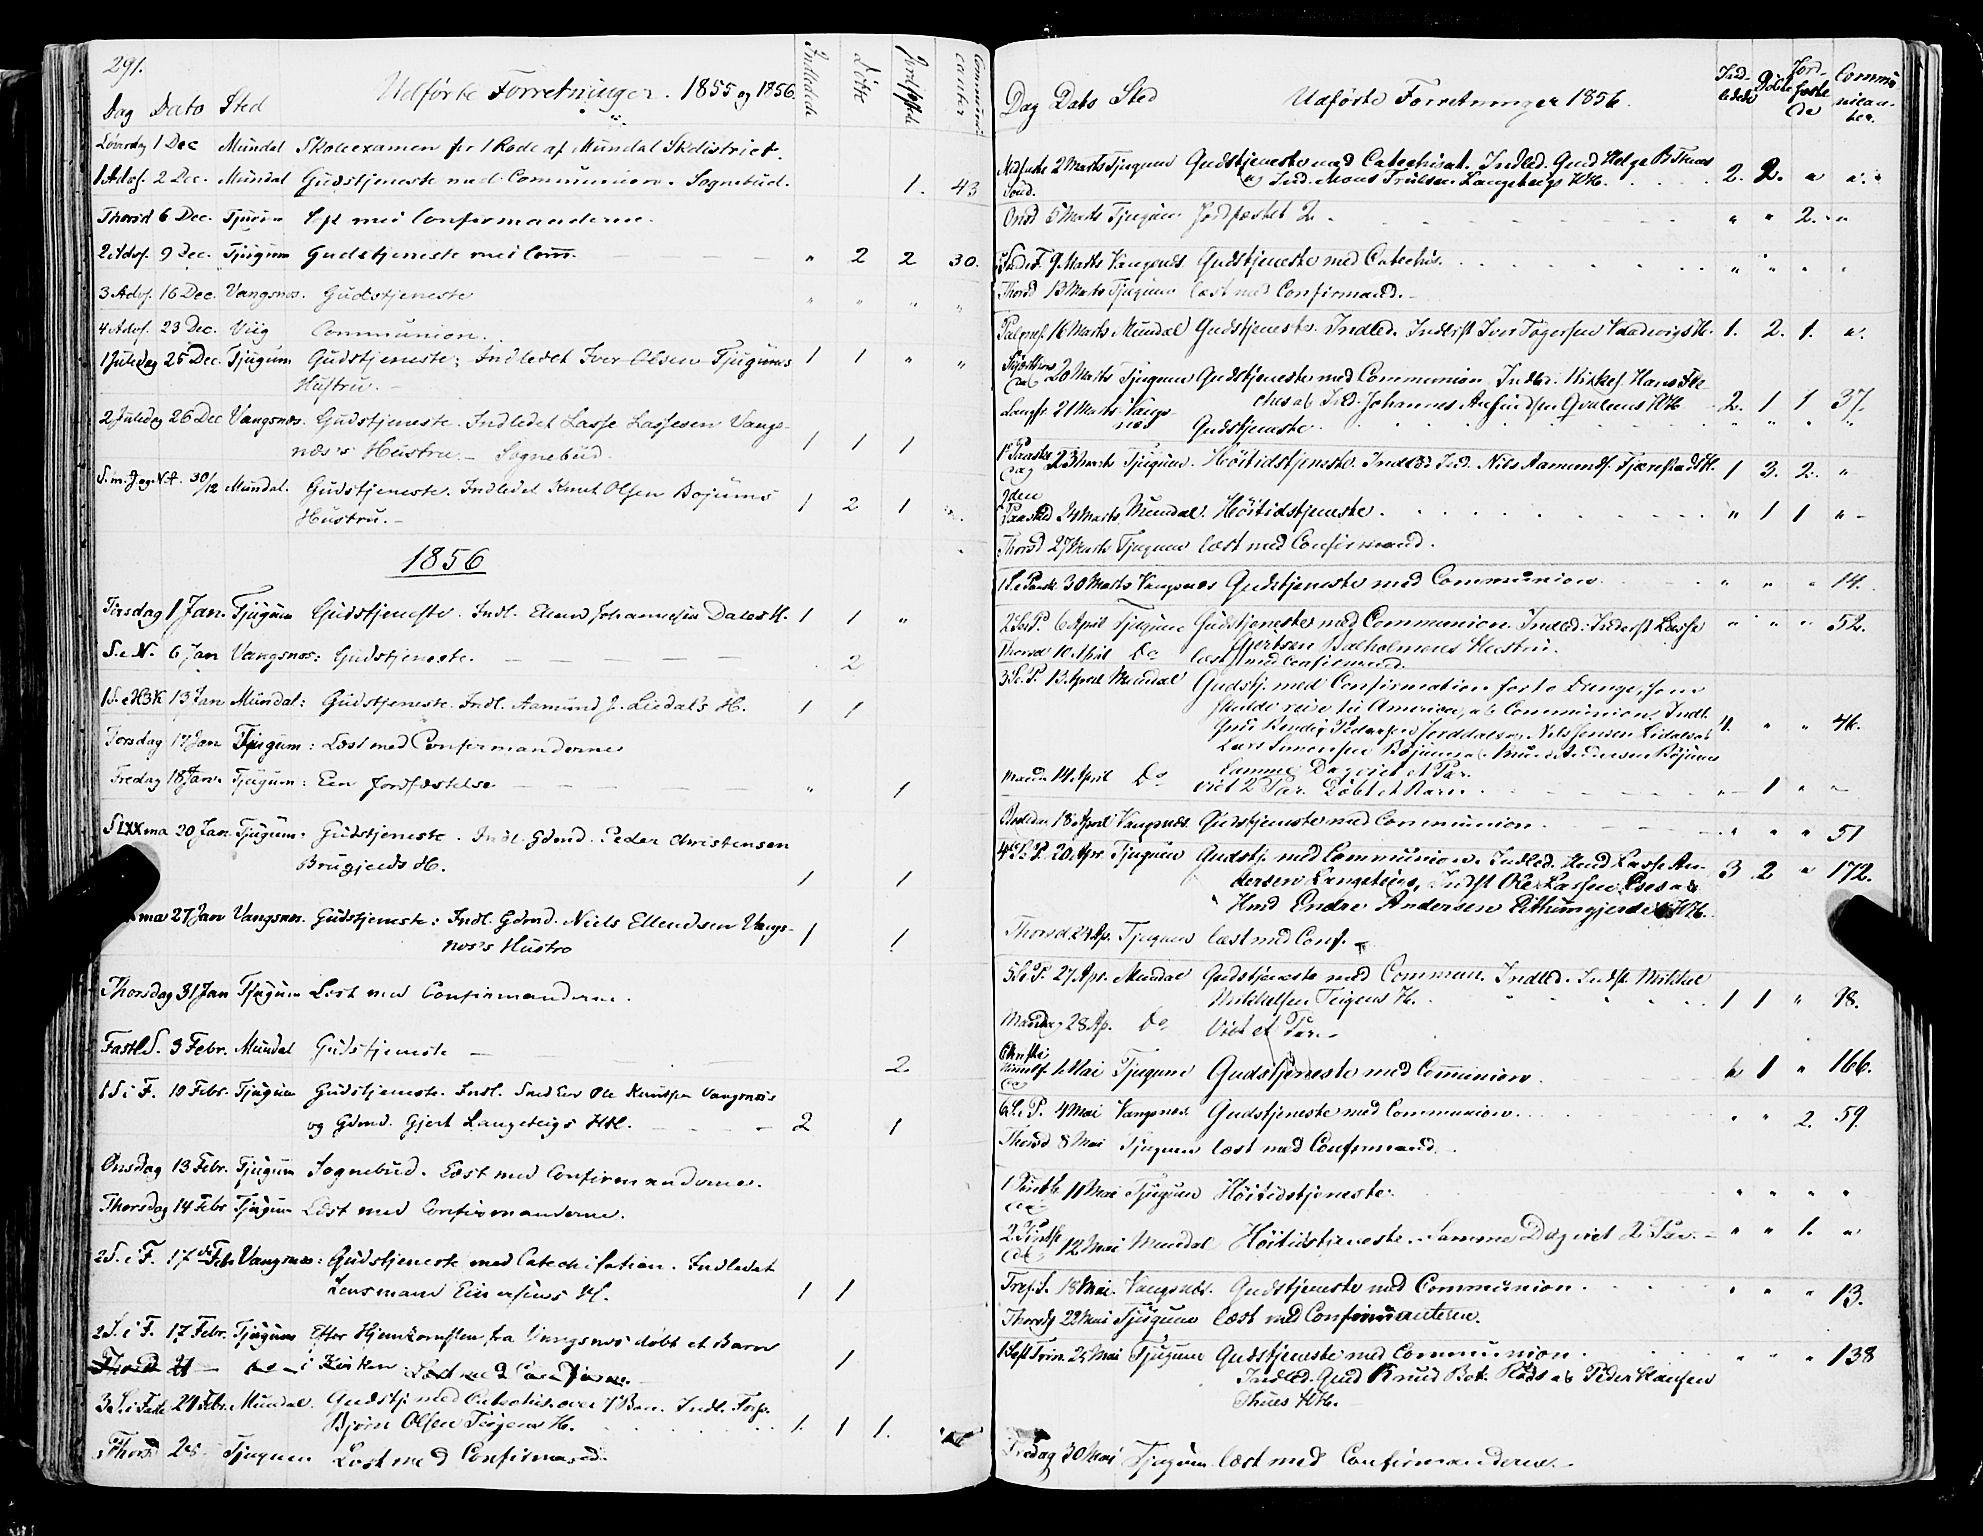 291.
Udførte Forretninger. 1855 og 1856.
Dag Dato Sted Indledede Döbte Jordfæstede Communicanter
Løverdag 1 Dec Mundal Skoleexamen for 1 Rode af Mundal Skdistrict.
1 Adv. 2 Dec. Mundal Gudstjeneste med Communion. Sognebud. 1. 43
Thorsd 6 Dec. Tjugum læst med Confirmanderne.
2 Adv. 9 Dec. Tjugum Gudstjeneste med Com. " 2 2 30.
3 Adv. 16 Dec. Vangsnæs. Gudstjeneste " " " "
4 Adv. 23 Dec. Viig Communion.
1 Juledag 25 Dec. Tjugum Gudstjeneste; Indledet Iver Olsen Tjugums 1 1 " "
Hustru.
2 Juledag 26 Dec Vangsnæs. Gudstjeneste. Indledet Lasse Lassesen Vangs-
næs's Hustru. Sognebud. 1 1 1
S. m. J. og N. A. 30/12 Mundal. Gudstjeneste. Indledet Knut Olsen Bojums
Hustru. 1 2 1
1856
Torsdag 1 Jan. Tjugum Gudstjeneste. Indl. Ellend Johannesen Dales H. 1 1 "
S. e N. 6 Jan Vangsnæs: Gudstjeneste. 2
1 S. e H3K 13 Jan Mundal: Gudstjeneste. Indl. Aamund J. Liedals H. 1 1
Torsdag 17 Jan Tjugum: Læst med Confirmanderne
Fredag 18 Jan Tjugum: Een Jordfæstelse " 1
S LXXma 20 Jan Tjugum. Gudstjeneste. Indl. Gdmd. Peder Christensen
Brugjerds H. 1 1
ma 27 Jan Vangsnæs. Gudstjeneste: Indl. Gdmd. Niels Ellendsen Vangs-
næs's Hustro 1 1
Thorsdag 31 Jan Tjugum Læst med Confirmanderne.
Fastl. S. 3 Febr. Mundal Gudstjeneste 2
1 S i F. 10 Febr. Tjugum Gudstjeneste. Indl. Ole Knutsen Vangsnæs
og Gdmd. Gjert Langeteigs HH. 2 1
Onsdag 13 Febr. Tjugum Sognebud. Læst med Confirmanderne.
Thorsdag 14 Febr Tjugum Læst med Confirmanderne.
2 S. i F. 17 Febr Vangsnæs: Gudstjeneste med Catechisation. Indledet
Lensmand Einersens H. 1 1
2 S. i F. 17 Febr. Tjugum Efter Hjemkomsten fra Vangsnæs döbt et Barn
i Kirken 1
3 S. i Faste 24 Febr. Mundal. Gudstj. med Catechis. over 7 Bøn. Indl.
Bjørn Olsen H. 1. 1 1.
Thorsd 28 Tjugum Læst med Confirmand.
Dag Dato Sted Udførte Forretninger 1856. Ind-ledede Döbte Jord-fæstede Communicanter.
Midfaste Sönd. 2 Marts Tjugum Gudstjeneste med Catechisat. Indled. Gmd Helge B. Thues
og Ind. Mons Trulsen Langeteigs HH. 2. 2. " "
Onsd 5 Marts Tjugum Jordfæstet 2. " " 2. "
9 Marts Vangsnæs. Gudstjeneste med Catechis. " " " "
Thorsd 13 Marts Tjugum læst med Confirmand.
Palmes. 16 Marts Mundal Gudstjeneste. Indled. Inderst Iver H. 1. 2. 1. "
20 Marts Tjugum Gudstjeneste med Communion. Indled. Mikkel Hans
og Ind. Johannes HH 2. 1 1 37.
Langfr. 21 Marts Vangsnæs Gudstjeneste. " " " "
1 Paaskedag 23 Marts Tjugum. Höitidstjeneste. Indled Ind. Nils Aamunds. Fjærestad H. 1 3. 2. "
2den Paasked 24 Marts Mundal. Höitidstjeneste. " 1 1 "
Thorsd 27 Marts Tjugum læst med Confirmand.
1 S. e Paask. 30 Marts Vangsnæs Gudstjeneste med Communion " " " 14.
2 S. e P. 6 April Tjugum Gudstjeneste med Communion. Indled. Inderst Lasse " " " 52.
Gjertsen Balholmens Hustru.
Thorsd 10 April Do læst med Confirmand.
3 S. e. P. 13 April Mundal Gudstj. med Confirmation for to Drenge, som
skulde reise til America, og Communion. Indl.
Gmd Pedersen Jorddals og Nils Jensen Lidals og
Lars Simonsen Bojums og Knud Andersen Bojums 4. " " 46.
Samme Dag viet et Par.
Mand. 14 April Do viet 2 Par. Döbt et Barn. " 1 " "
18 April Vangsnæs. Gudstjeneste med Communion. " " " 51
4 S. e P. 20 Apr. Tjugum Gudstj. med Communion. Indled. Hmd Lasse An-
dersen Langeteigs, Indst Ole Larsen og 3 2 " 172.
Hmd Endre Andersen HH.
Thorsd 24 Ap. Tjugum læst med Conf.
5 S. e P. 27 Apr. Mundal Gudstjeneste med Commun. Indled. Indst. Mikkel
Mikkelsen Teigens H. 1 1 " 98.
Mandag 28 Ap. Do Viet et Par.
Christi Himmelf. 1 Mai Tjugum Gudstjeneste med Communion. " 1 " 166.
6 S. e P. 4 Mai Vangsnæs. Gudstjeneste med Communion. " " 2. 59.
Thorsd 8 Mai Tjugum læst med Confirmand.
1 Pintsedag 11 Mai Tjugum Höitidstjeneste. " " " "
2 Pintsedag 12 Mai Mundal Höitidstjeneste. Samme Dag viet 2 Par. " " 1. "
Tref. S. 18 Mai. Vangsnæs. Gudstjeneste med Communion. " " " 13.
Thorsdg 22 Mai Tjugum læst med Confirmanterne.
1 S eft Trin. 25 Mai Tjugum Gudstjeneste med Communion. " " " 138
Indled. Gmd Knud Bot. og Peder Hansen
Thues HH.
Fredag 30 Mai Tjugum læst med Confirmanderne.